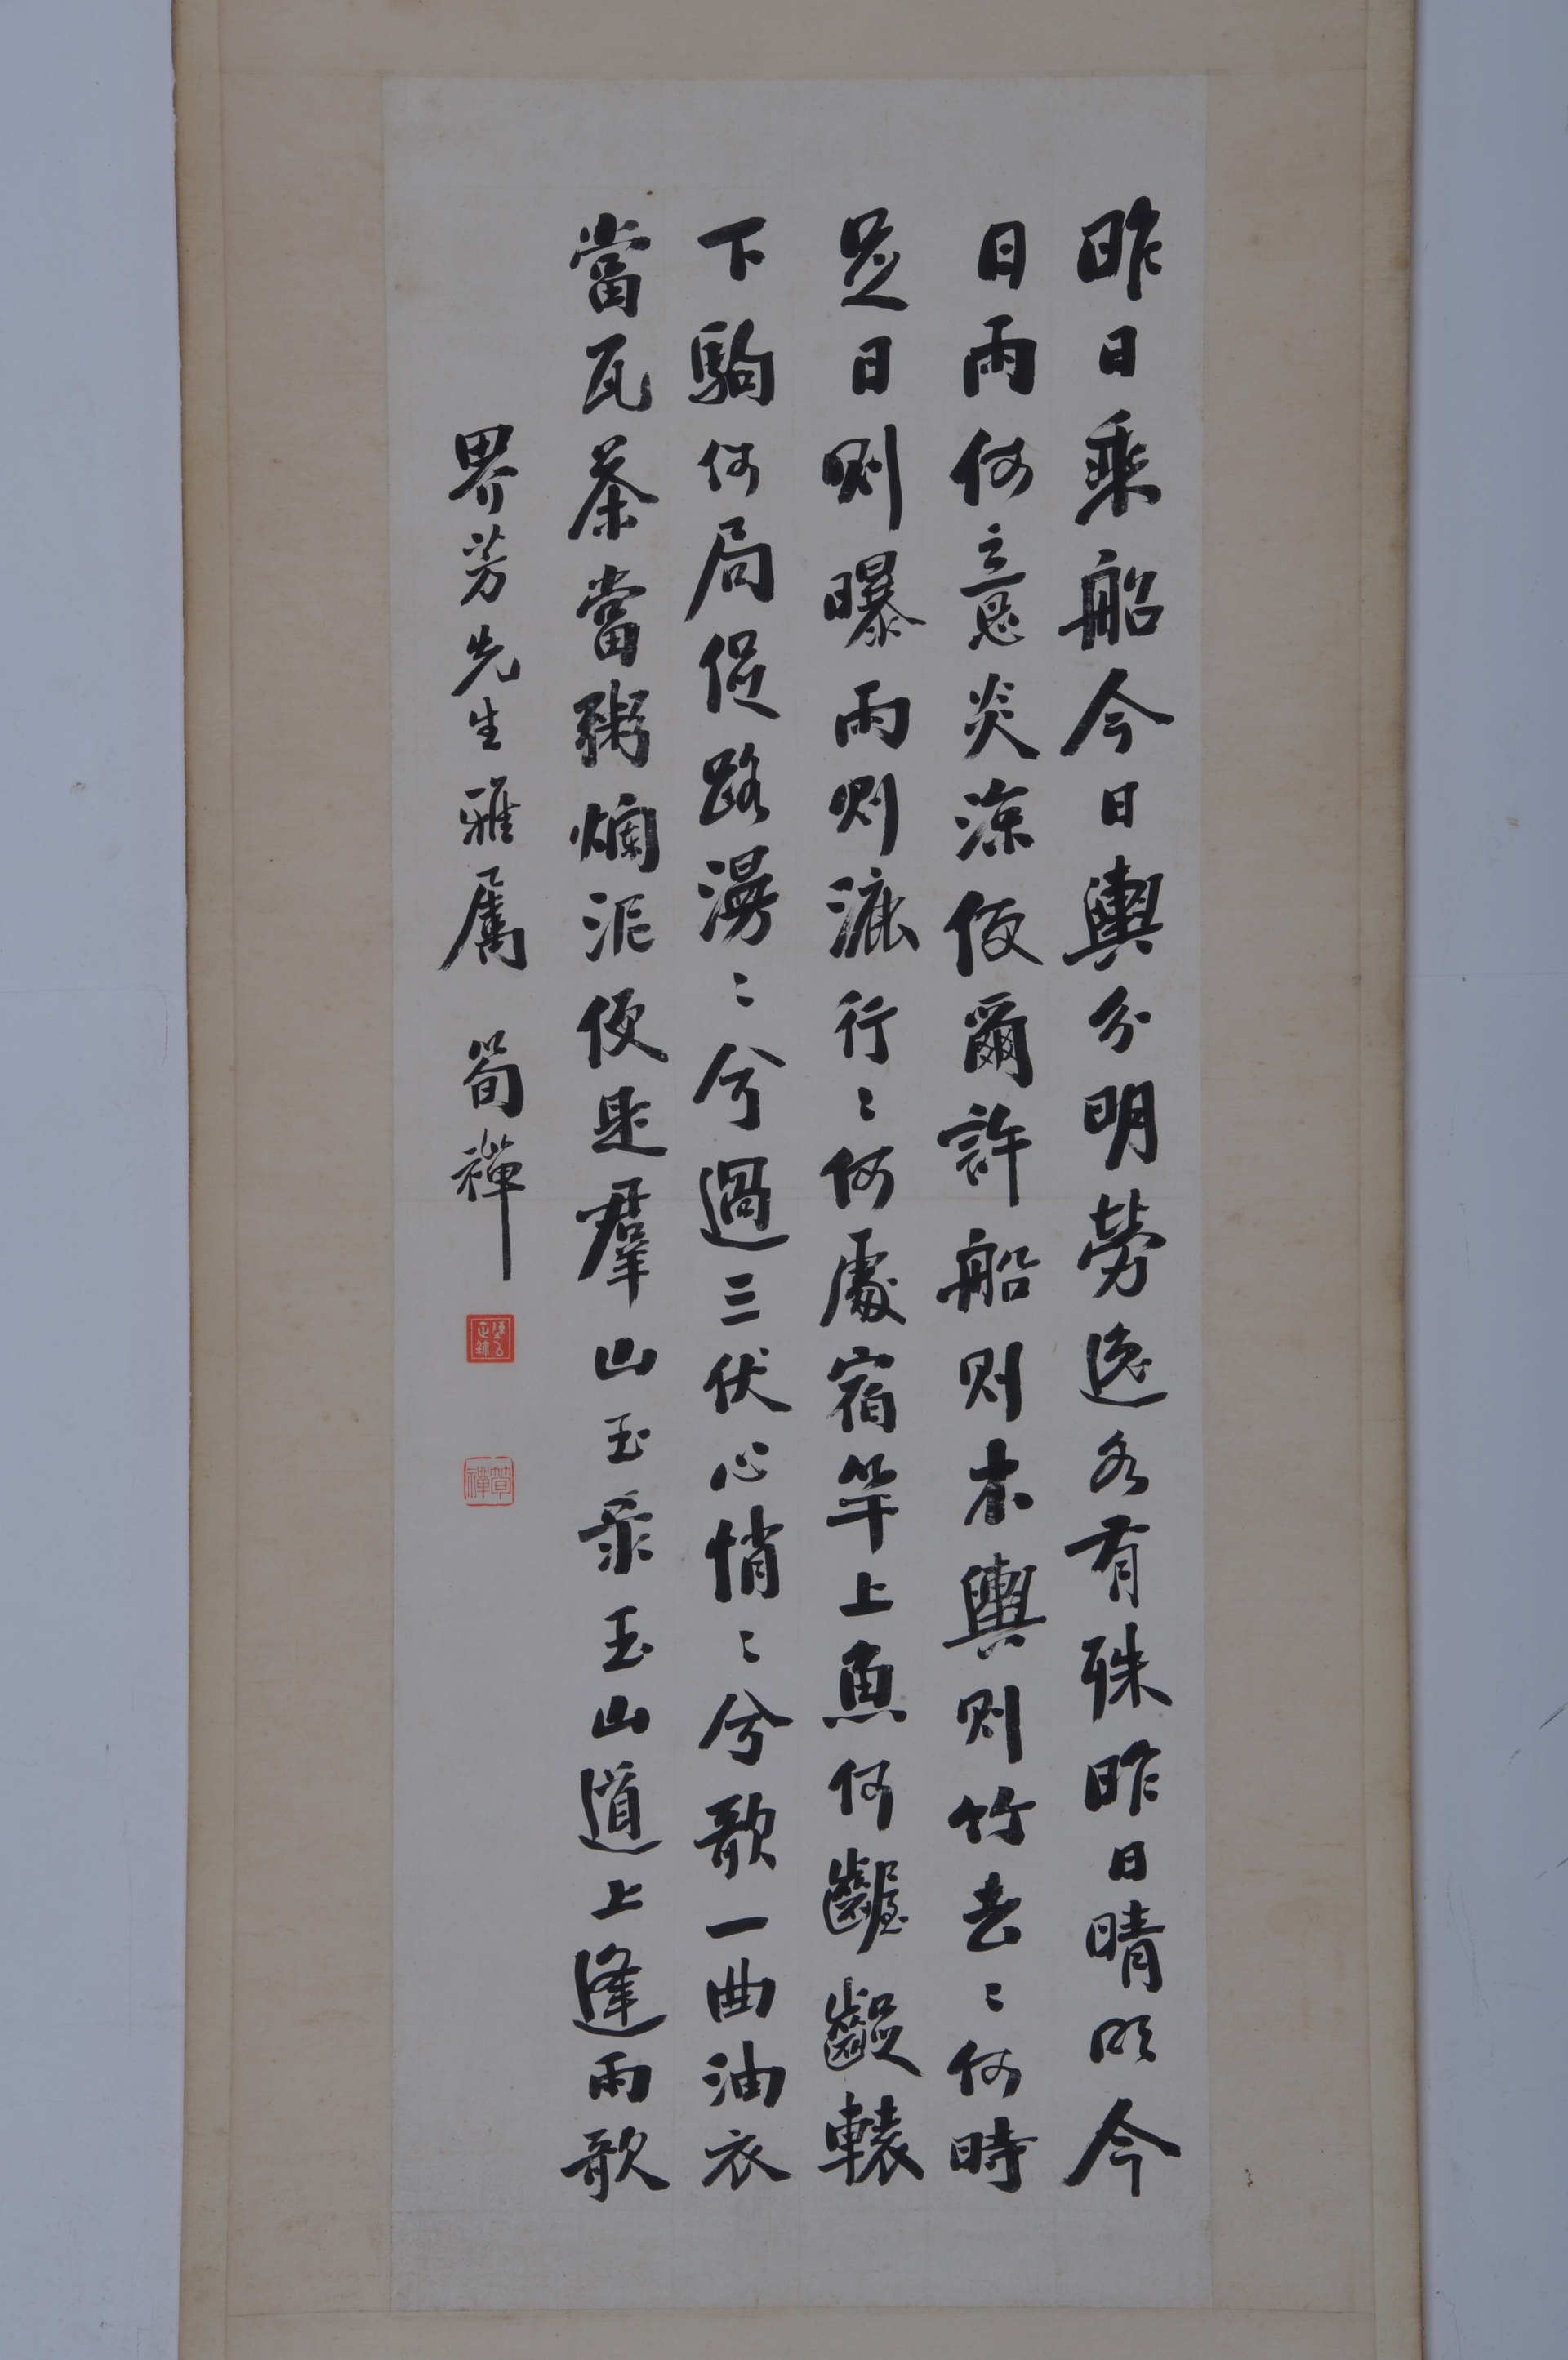 昨日乘船今日輿分明勞逸各有殊昨日晴明今
日雨何意炎涼復爾許船則木輿則竹去〻何時
足日則曝雨則漉行〻何處宿竿上魚何齷齪轅
下駒何局促路漫〻兮過三伏心悄〻兮歌一曲油衣
當瓦茶當粥爛泥便是羣山玉黍玉山道上逢雨歌
界芳先生雅屬 筍禪